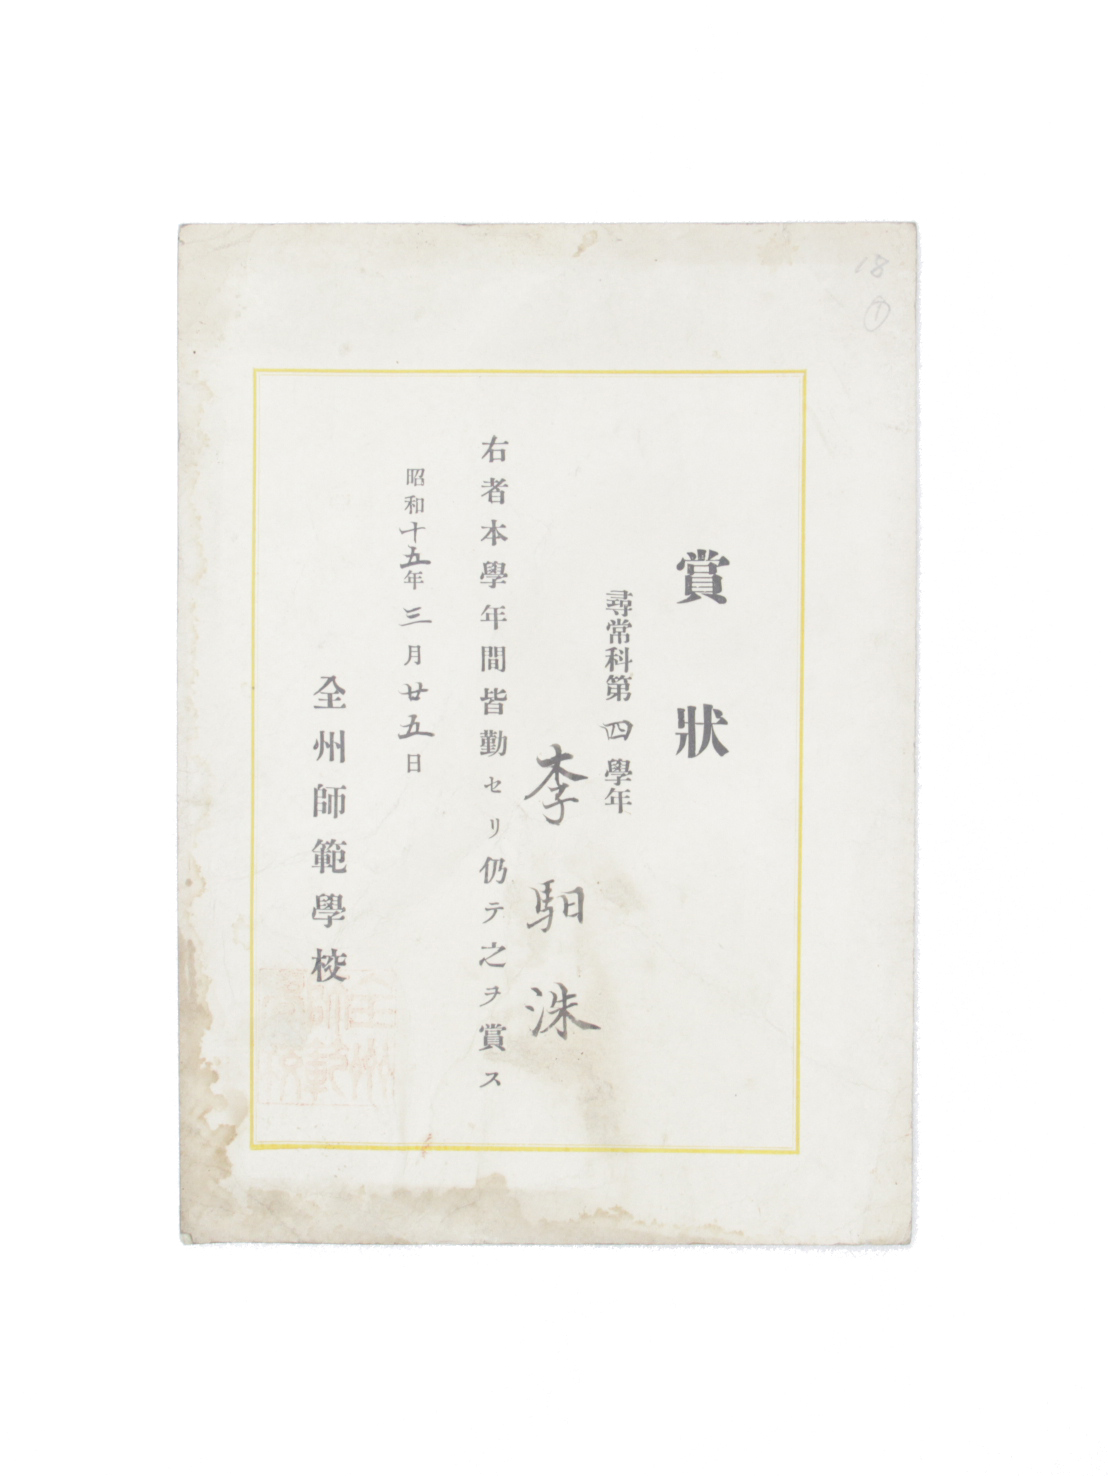 賞狀
尋常科第四學年
李馹洙
右者本學年間皆勤セリ仍テ之ヲ賞ス
昭和十五年三月廿五日
全州師範學校
18
①